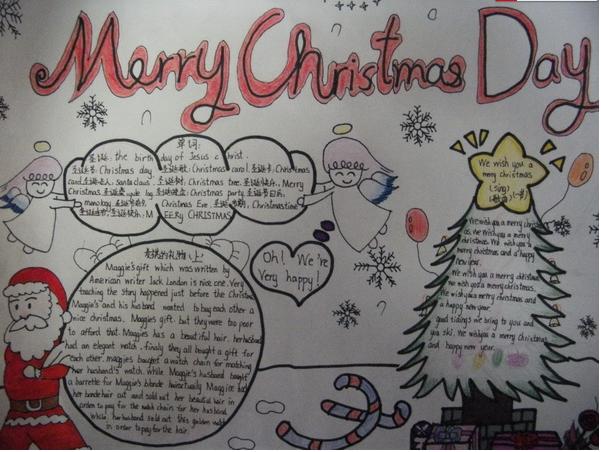 Merry Christmas Day
单词:
圣诞: the birth day of Jesus christ.
圣诞节: Christmas day 圣诞歌: Christmas carol. 圣诞卡: Christmas
card. 圣诞老人: santa claus. 圣诞树: Christmas tree. 圣诞快乐: Merry
Christmas. party
Christmas Eve. Christmastime
MEERy CHRISTMAS
的礼物(上)
Maggie's gift which was written by
American writer Jack London is nice one. Very
teaching the story happened just before the Christma
Maggie's and his husband wanted to buy each other a
nice christmas. Maggies gift. but they were too poor
to afford that. Maggies has a beautiful hair. her husband
had an elegant watch. finaly they all bought a gift for
each other. maggies bought a watch chain for matching
her husband's watch. While Maggie's husband bought
a barrette for Maggie's blonde hair. actually Maggie had
her hair cut and sold out her beautiful hair in
order to pay for the watch chain for her husband
While her husband sold out this golden watch
in order to pay for the hair.
Oh! We're
Very happy!
We wish you a
merry christmas
(sing)
We wish you a merry christm
as. We wish you a merry
christmas. And wish you a
merry christmas and a happy
new year.
We wish you a merry christmas
we wish you a merry christmas.
We wish you a merry christmas and
a happy new year
good tidings we bring to you and
you ski. We wish you a merry christmas
and happy new year.